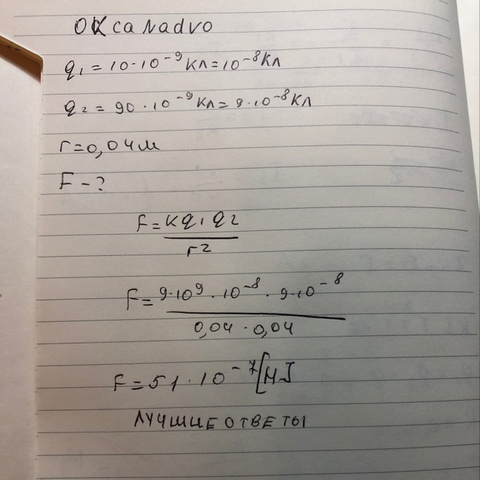 OKcaNadvo
q₁ = 10·10⁻⁹ Кл = 10⁻⁸ Кл
q₂ = 90·10⁻⁹ Кл = 9·10⁻⁸ Кл
r = 0,04 м
F - ?
F = kq₁q₂
r²
F = 9·10⁹·10⁻⁸·9·10⁻⁸
0,04·0,04
F = 51·10⁻⁷ [Н]
ЛУЧШИЕ ОТВЕТЫ